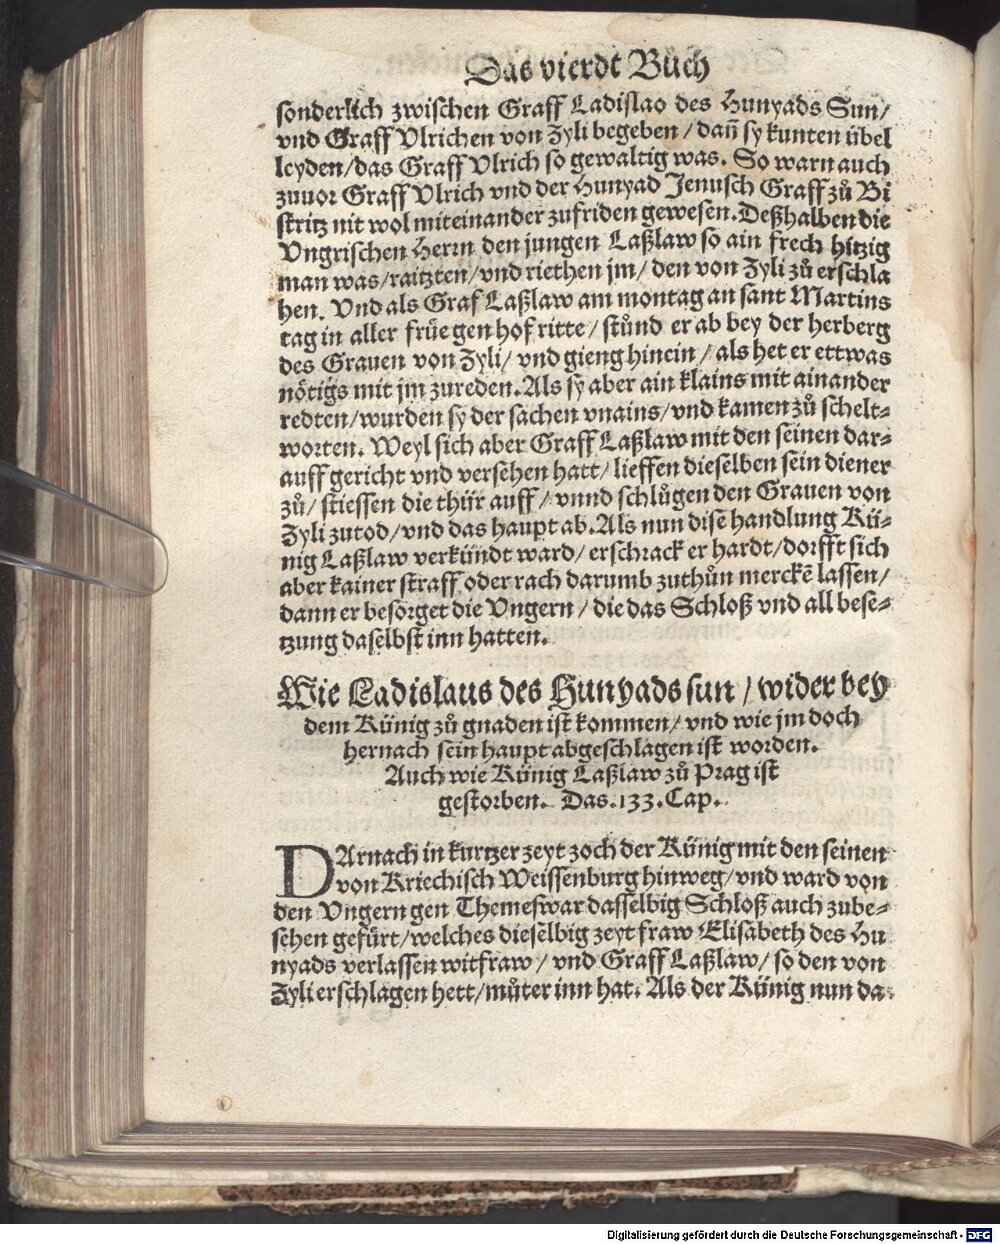 Das vierdt Bůch
sonderlich zwischen Graff Ladislao des Hunyads Sun/
vnd Graff Vlrichen von Zyli begeben / dañ sy kunten übel
leyden/das Graff Vlrich so gewaltig was. So warn auch
zuuor Graff Vlrich vnd der Hunyad Jenusch Graff zů Bi
stritz nit wol miteinander zufriden gewesen. Deßhalben die
Vngrischen Herrn den jungen Laßlaw so ain frech hitzig
man was/raitzten/vnd riethen jm/ den von Zyli zů erschla
hen. Vnd als Graf Laßlaw am montag an sant Martins
tag in aller früe gen hof ritte/ stůnd er ab bey der herberg
des Grauen von Zyli/ vnd gieng hinein / als het er ettwas
nötigs mit jm zureden. Als sy aber ain klains mit ainander
redten/wurden sy der sachen vnains/vnd kamen zů schelt⸗
worten. Weyl sich aber Graff Laßlaw mit den seinen dar⸗
auff gericht vnd versehen hatt/ lieffen dieselben sein diener
zů/ stiessen die thür auff / vnnd schlůgen den Grauen von
Zyli zutod/vnd das haupt ab. Als nun dise handlung Kü⸗
nig Laßlaw verkündt ward/ erschrack er hardt/dorfft sich
aber kainer straff oder rach darumb zuthůn merckē lassen/
dann er besorget die Vngern / die das Schloß vnd all bese⸗
tzung daselbst inn hatten.
Wie Ladislaus des Hunyads sun / wider bey
dem Künig zů gnaden ist kommen/ vnd wie jm doch
hernach sein haupt abgeschlagen ist worden.
Auch wie Künig Laßlaw zů Prag ist
gestorben. Das .133. Cap.
DArnach in kurtzer zeyt zoch der Künig mit den seinen
von Kriechisch Weissenburg hinweg/vnd ward von
den Vngern gen Themeswar dasselbig Schloß auch zube⸗
sehen gefürt/welches dieselbig zeyt fraw Elisabeth des Hu
nyads verlassen witfraw / vnd Graff Laßlaw/ so den von
Zyli erschlagen hett/můter inn hat. Als der Künig nun da⸗
Digitalisierung gefördert durch die Deutsche Forschungsgemeinschaft - DFG